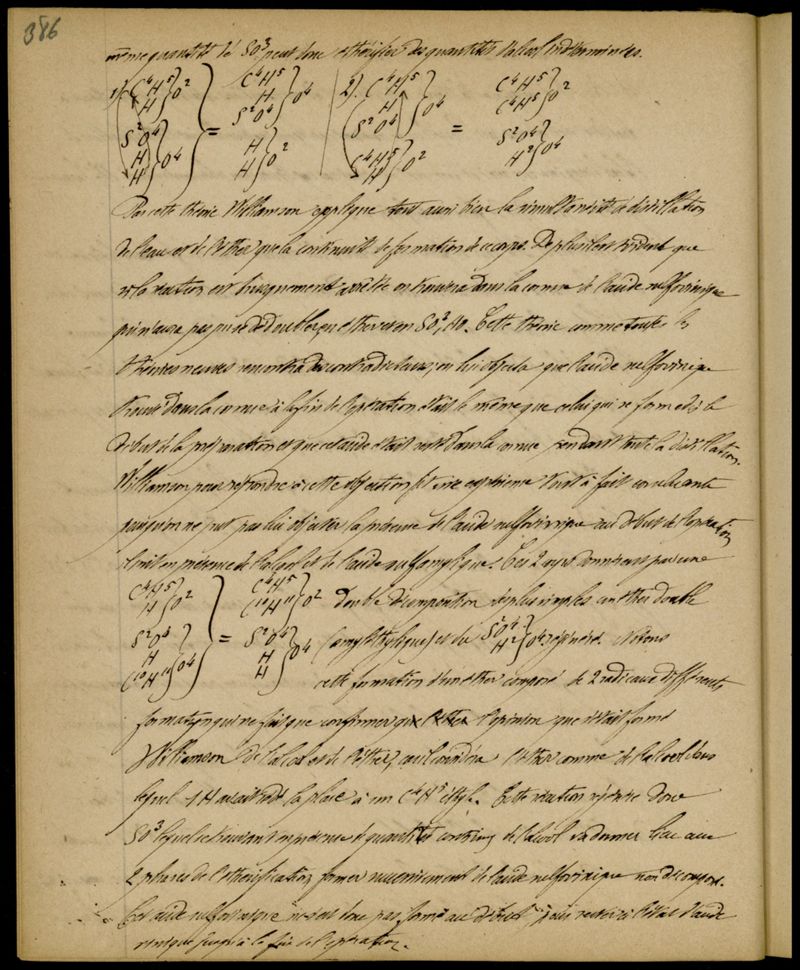 386
même quantité de SO³ peut donc éthérifier des quantités d'alcool indéterminées.
1) C⁴H⁵ } O² C⁴H⁵ 2) C⁴H⁵ C⁴H⁵ } O²
H H } O⁴ H } O⁴ C⁴H⁵
S²O⁴ = S²O⁴ S²O⁴ = S²O⁴ } O⁴
H } O⁴ H } O² C⁴H⁵ } O² H²
H H H
Par cette théorie Williamson explique tout aussi bien la simultanéité de distillation
de l'eau et de l'éther que la continuité de formation de ce corps. De plus il est évident que
si la réaction est brusquement arrêtée on trouvera dans la cornue de l'acide sulfovinique
qui n'aura pas pu se dédoubler en éther et en SO³, HO. Cette théorie comme toutes les
théories neuves rencontra des contradicteurs; on lui objecta que l'acide sulfovinique
trouvé dans la cornue à la fin de l'opération était le même que celui qui se forme dès le
début de la préparation et que cet acide était resté dans la cornue pendant toute la distillation.
Williamson pour répondre à cette objection fit une expérience tout à fait concluante
puisqu'on ne put pas lui objecter la présence de l'acide sulfovinique au début de l'opération
Il mit en présence de l'alcool et de l'acide sulfamylique. Ces 2 corps donnèrent par une
C⁴H⁵ } O² C⁴H⁵ } O² double décomposition des plus simples un éther double
H C¹⁰H¹¹
S²O⁴ = S²O⁴ (amyléthylique) et du S²O⁴ } O⁴ régénéré. Notons
H } O⁴ H } O⁴ H²
C¹⁰H¹¹ H cette formation d'un éther composé de 2 radicaux différents
formation qui ne fait que confirmer l'opinion que s'était formé
Williamson de l'alcool et de l'éther, car il considéra l'éther comme de l'alcool dans
lequel 1 H aurait cédé la place à un C⁴H⁵ éthyle. Cette réaction régénère donc
SO³ lequel se trouvant en présence de quantités d'alcool va donner lieu aux
2 phases de l'éthérification, former nouvellement de l'acide sulfovinique non décomposé.
Cet acide sulfovinique ne s'est donc pas formé au début pour rester à l'état d'acide
vinique jusqu'à la fin de l'opération.